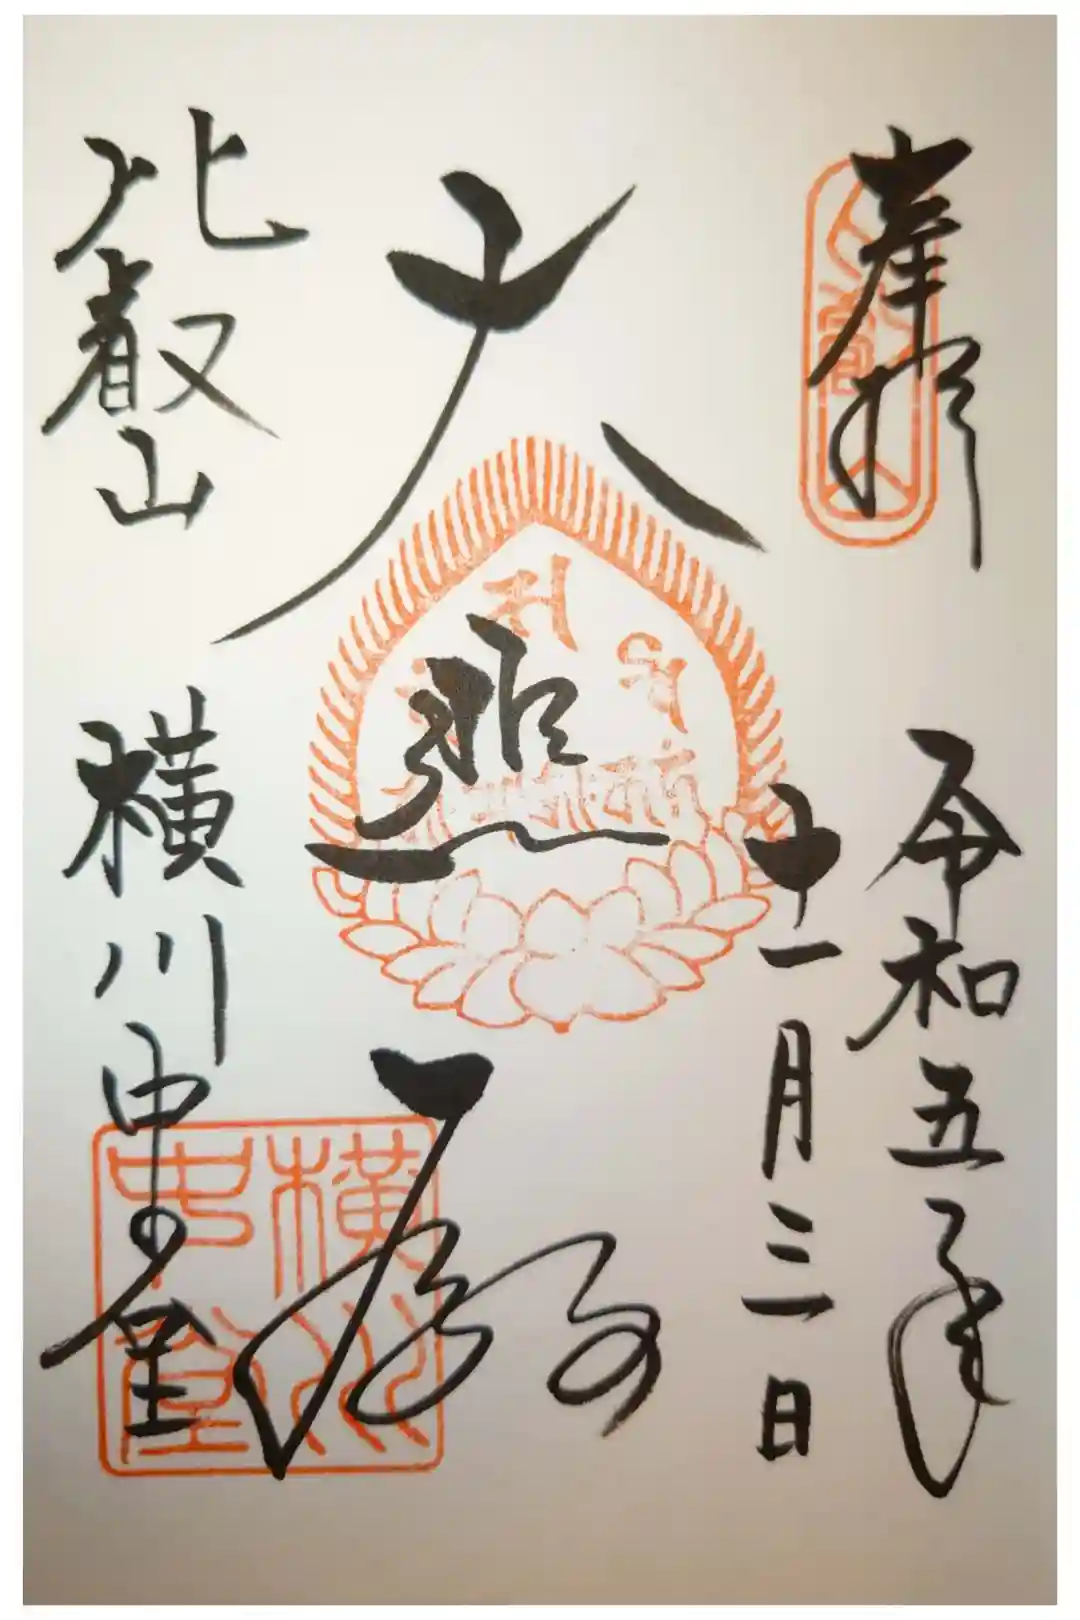 奉拝
令和五年
十一月三日
大悲殿
比叡山
横川中堂
横川
中堂